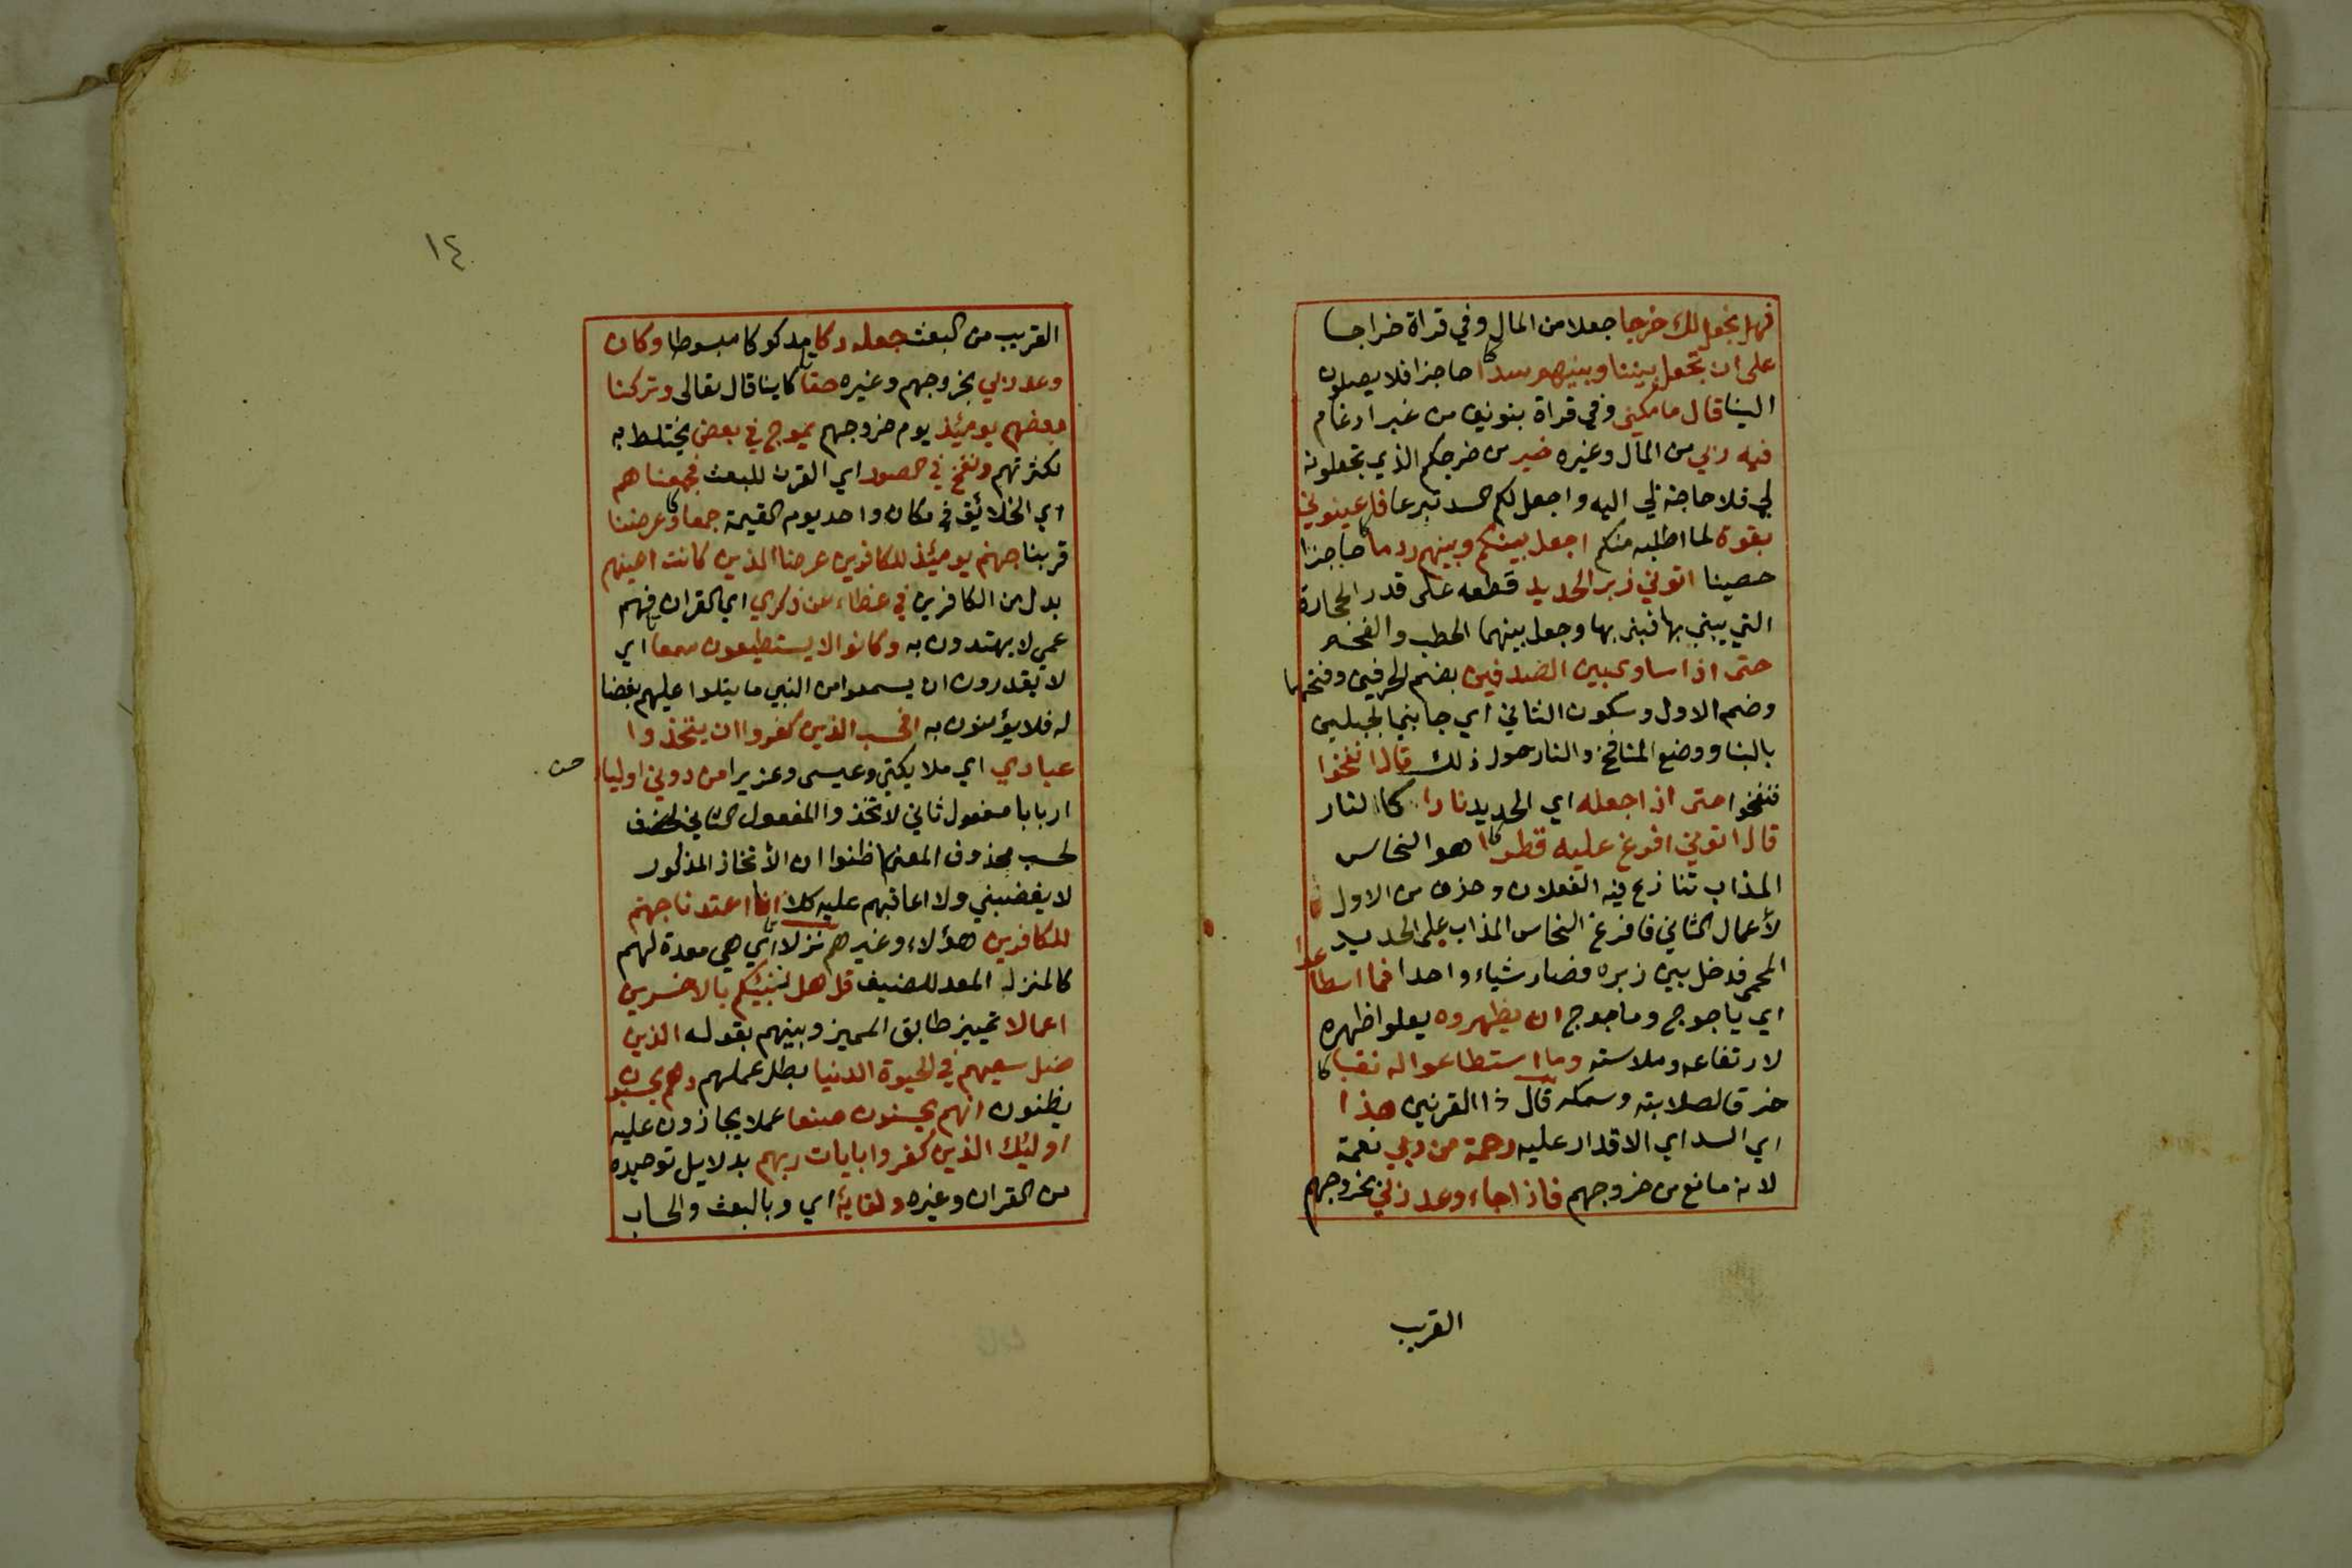 فهل نجعل لك خرجا جعلا من المال وفي قراة خراجا
على ان تجعل بيننا وبينهم سدا حاجزا فلا يصلون
الينا قال ما مكني وفي قراة بنونين من غير ادغام
فيه ربي من المال وغيره خير من خرجكم الذي تجعلونه
لي فلا حاجة لي اليه واجعل لكم السد تبرعا فاعينوني
بقوة لما اطلبه منكم اجعل بينكم وبينهم ردما حاجزا
حصينا اتوني زبر الحديد قطعه على قدر الحجارة
التي يبني بها فبنى بها وجعل بينهما الحطب والفحم
حتى اذا ساوى بين الصدفين بضم الحرفين وفتحهما
وضم الاول وسكون الثاني اي جانبي الجبلين
بالبنا ووضع المنافخ والنار حول ذلك قال انفخوا
فنفخوا حتى اذا جعله اي الحديد نارا كالنار
قال اتوني افرغ عليه قطرا هو النحاس
المذاب تنازع فيه الفعلان وحذف من الاول
لأعمال الثاني فافرغ النحاس المذاب على الحديد
المحمى فدخل بين زبره فصار شياء واحدا فما اسطاعوا
اي ياجوج وماجوج ان يظهروه يعلوا ظهره
لارتفاعه وملاسته وما استطاعوا له نقبا
خرقا لصلابته وسمكه قال ذا القرنين هذا
اي السد اي الاقدار عليه رحمة من ربي نعمة
لانه مانع من خروجهم فاذا جاء وعد ربي بخروجهم
القريب
١٤
القريب من البعث جعله دكا مدكوكا مبسوطا وكان
وعد ربي بخروجهم وغيره حقا كاينا قال تعالى وتركنا
بعضهم يومئذ يوم خروجهم يموج في بعض يختلط به
لكثرتهم ونفخ في الصور اي القرن للبعث فجمعناهم
اي الخلائق في مكان واحد يوم القيمة جمعا وعرضنا
قربنا جهنم يومئذ للكافرين عرضا الذين كانت اعينهم
بدل من الكافرين في غطاء عن ذكري اي القران فهم
عمي لا يهتدون به وكانوا لا يستطيعون سمعا اي
لا يقدرون ان يسمعوا من النبي ما يتلوا عليهم بغضا
له فلا يؤمنون به افحسب الذين كفروا ان يتخذوا
عبادي اي ملايكتي وعيسى وعزيرا من دوني اولياء
اربابا مفعول ثاني لاتخذوا المفعول الثاني
لحسب محذوف المعنى اظنوا ان الأتخاذ المذكور
لا يغضبني ولا اعاقبهم عليه كلا انا اعتدنا جهنم
للكافرين هؤلاء وغيرهم نزلا اي هي معدة لهم
كالمنزل المعد للضيف قل هل ننبئكم بالاخسرين
اعمالا تمييز طابق المميز وبينهم بقوله الذين
ضل سعيهم في الحيوة الدنيا بطل عملهم وهم يحسبون
يظنون انهم يحسنون صنعا عملا يجازون عليه
اوليك الذين كفروا بايات ربهم بدلايل توحيده
من القران وغيره ولقايه اي وبالبعث والحساب